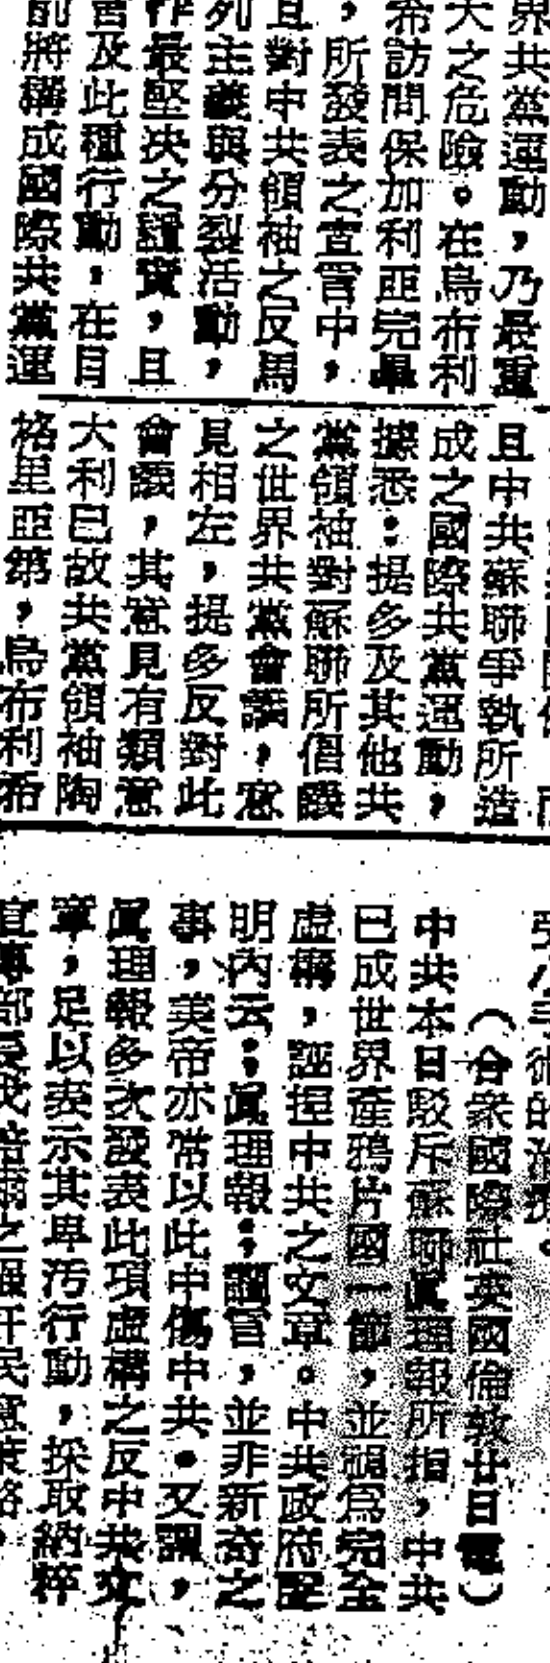 界共黨運動，乃最重
大之危險。在烏布利
希訪問保加利亞完畢
，所發表之宣言中，
且對中共領袖之反馬
列主義與分裂活動，
作最堅决之譴責，且
言及此種行動，在目
前將構成國際共黨運
且中共蘇聯爭執所造
成之國際共黨運動，
據悉：提多及其他共
黨領袖對蘇聯所倡議
之世界共黨會議，意
見相左，提多反對此
會議，其意見有類意
大利已故共黨領袖陶
格里亞第，烏布利希
（合衆國際社英國倫敦廿日電）
中共本日駁斥蘇聯眞理報所指，中共
已成世界產鴉片國一節，並謂爲完全
虛構，誣捏中共之文章。中共政府聲
明內云：眞理報；讕言，並非新奇之
事，美帝亦常以此中傷中共。又謂，
眞理報多次發表此項虛構之反中共文
章，足以表示其卑汚行動，採取納粹
宣傳部長戈培爾之强奸民意策略，